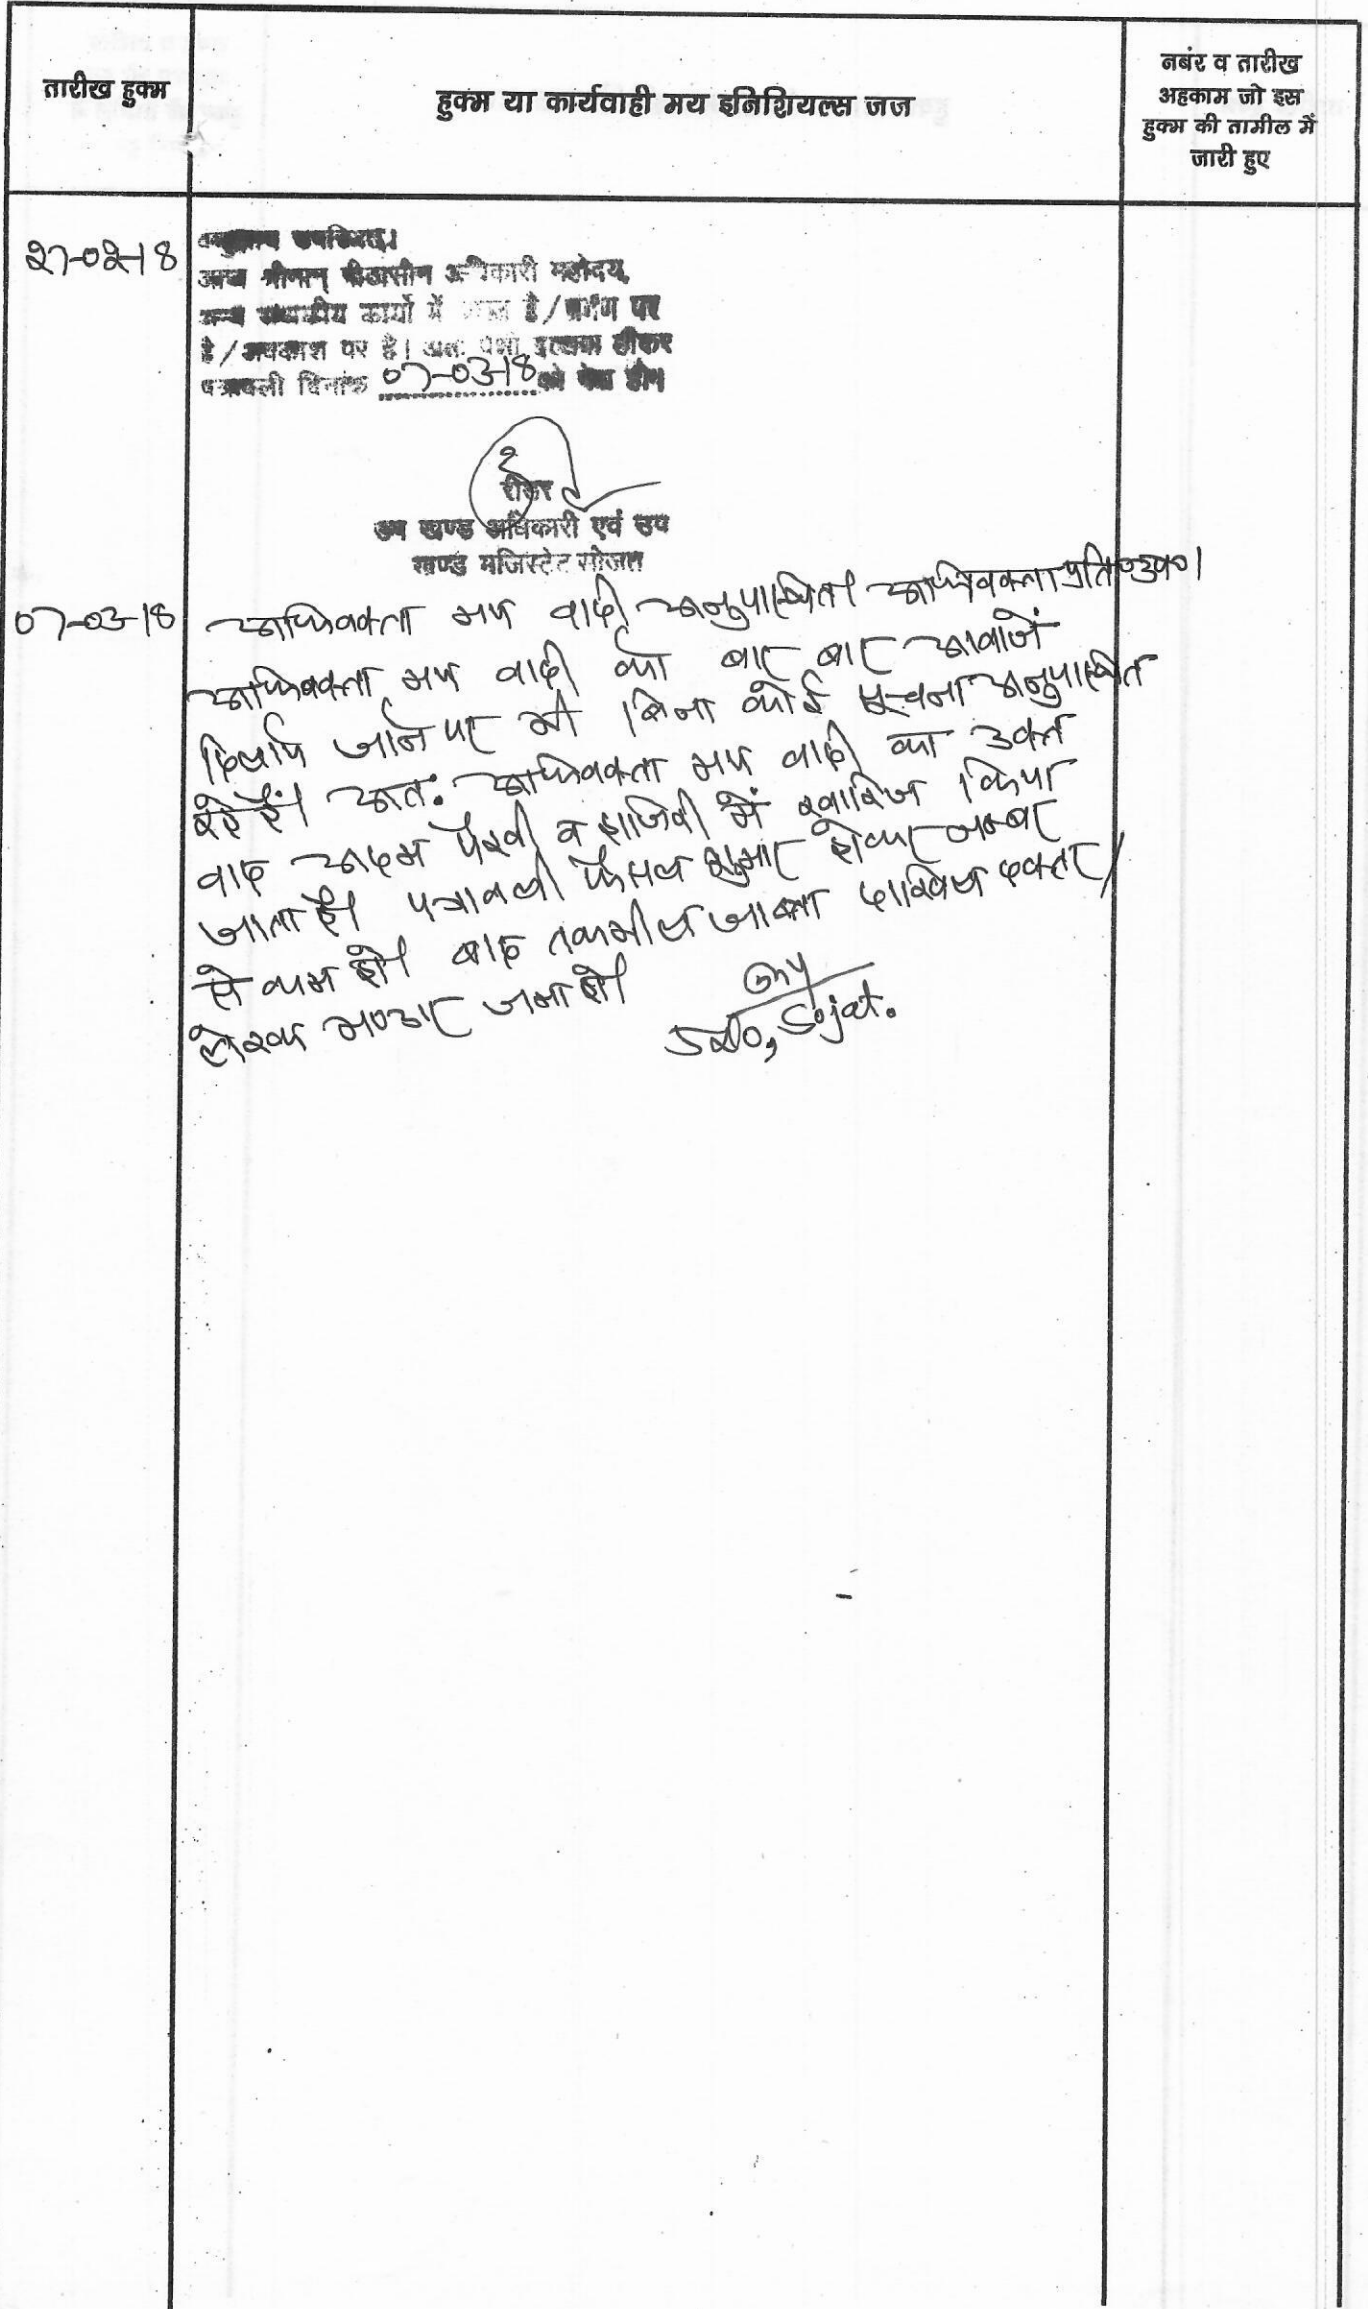 तारीख हुक्म
हुक्म या कार्यवाही मय इनिशियल्स जज
नबंर व तारीख
अहकाम जो इस
हुक्म की तामील में
जारी हुए
27-02-18
उपस्थित।
आज श्रीमान् पीठासीन अधिकारी महोदय,
अन्य राजकीय कार्यो में है/भ्रमण पर
है/अवकाश पर है। अतः पेशी होकर
पत्रावली दिनांक 07-03-18 को पेश होग
रीडर
उप खण्ड अधिकारी एवं उप
खण्ड मजिस्ट्रेट सोजत
07-03-18
अधिवक्ता मय वादी अनुपस्थित। अधिवक्ता प्रति०उप०।
अधिवक्ता मय वादी को बार बार आवाजें
दिलाये जाने पर भी बिना कोई सूचना अनुपस्थित
रहे हैं। अतः अधिवक्ता मय वादी का उक्त
वाद अदम पैरवी व हाजिरी में खारिज किया
जाता है। पत्रावली फैसल शुमार होकर नम्बर
से कम हो। बाद तकमील जाब्ता दाखिल दफ्तर/
लेखक भण्डार जमा हो।
SDO, Sojat.